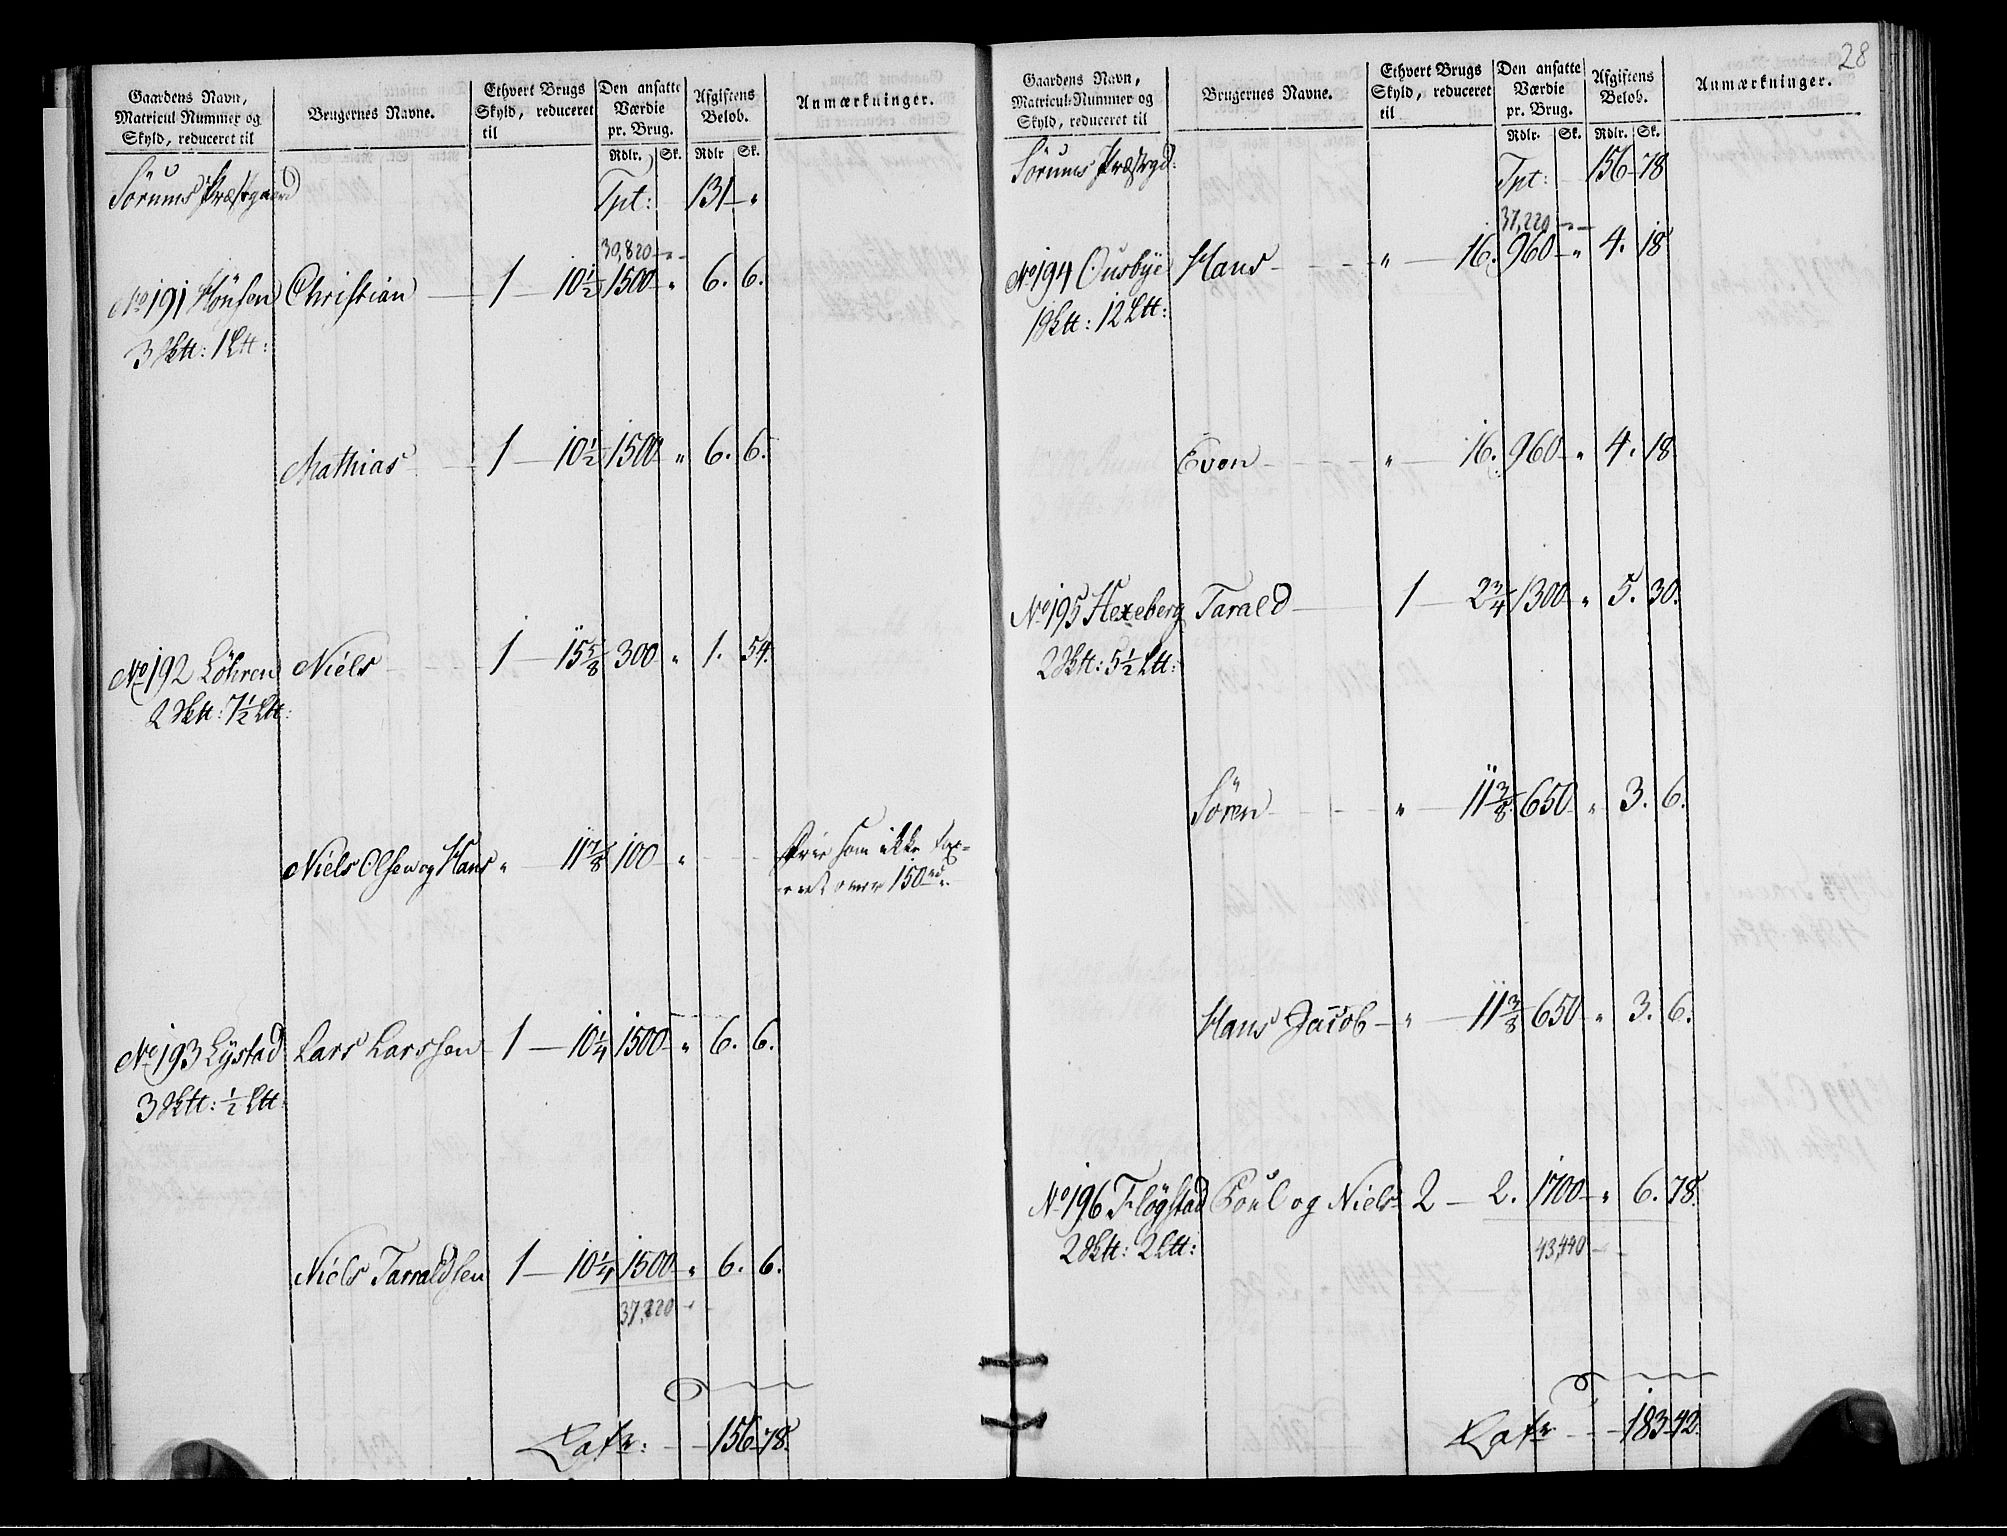 Gaardens Navn,
Matricul Nummer og
Skyld, reduceret til
Brugernes Navne.
Ethvert Brugs
Skyld, reduceret
til
Den ansatte
Værdie
pr. Brug.
Rdlr. Sk.
Afgiftens
Beløb.
Rdlr Sk.
Anmærkninger.
Sörums Præstgaard
Tpt: 131 - "
30,820 - " -
No 191 Mönsen Christian 1 - 10½ 1500 " 6. 6.
3 Skt: 1 Lt:
Mathias 1 - 10½ 1500 " 6. 6.
No 192 Löhren Niels 1 - 15⅝ 300 " 1. 54.
2 Skt: 7½ Lt:
Niels Olsen og Hans " 11⅞ 100 "
frie som ikke tax-
eret over 150 rd.
No 193 Lystad Lars Larssen 1 - 10¼ 1500 " 6. 6.
3 Skt: ½ Lt:
Niels Tarraldsen 1 - 10¼ 1500 " 6. 6.
37,220 - "
Latr: 156 - 78.
28
Gaardens Navn,
Matricul-Nummer og
Skyld, reduceret til
Brugernes Navne.
Ethvert Brugs
Skyld, reduceret
til
Den ansatte
Værdie
pr. Brug.
Rdlr. Sk.
Afgiftens
Beløb.
Rdlr. Sk.
Anmærkninger.
Sörums Præstgd:
Tpt: 156 - 78
37,220 - " -
No 194 Ousbye Hans " 16. 960 " 4. 18
1 Skt: 12 Lt:
Even " 16. 960 " 4. 18
No 195 Hexeberg Tarald 1 - 2¾ 1300 " 5. 30.
2 Skt: 5½ Lt:
Sören " 11⅜ 650 " 3. 6.
Hans Jacob " 11⅜ 650 " 3. 6.
No 196 Flögstad Poul og Niels 2 - 2. 1700 " 6. 78.
2 Skt: 2 Lt:
43,440 - -
Latr 183 - 42.